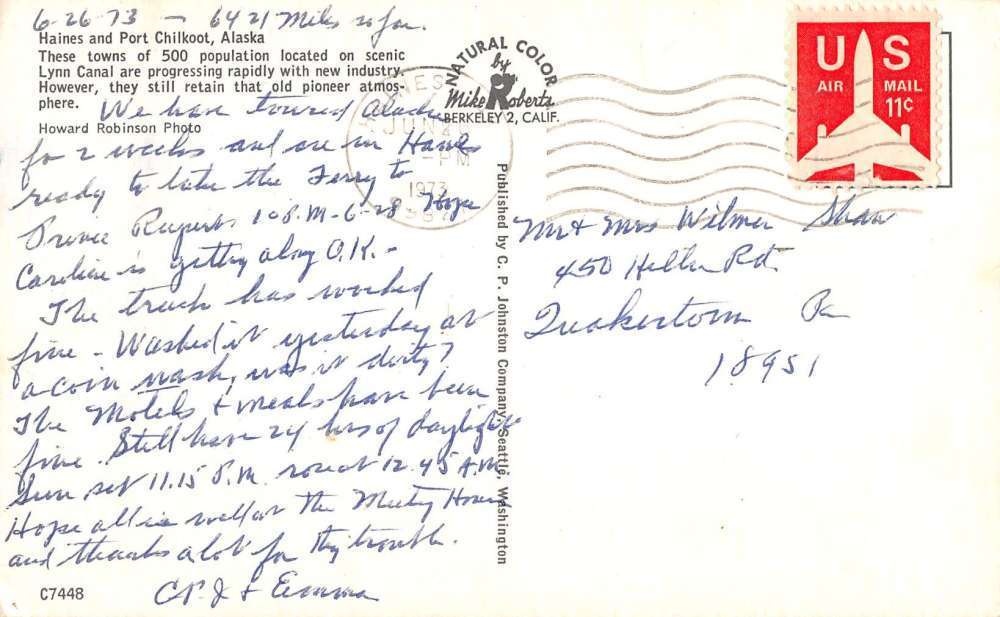 6-26-73 - 6421 Miles so far.
Haines and Port Chilkoot, Alaska
These towns of 500 population located on scenic
Lynn Canal are progressing rapidly with new industry.
However, they still retain that old pioneer atmos-
phere.
We have toured Alaska
Howard Robinson Photo
for 2 weeks and are in Haines
ready to take the Ferry to
Prince Rupert. 10 P.M-6-28 Hope
Caroline is getting along O.K.-
The truck has worked
fine - Washed it yesterday at
a coin wash, was it dirty?
The Motels & meals have been
fine. Still have 24 hrs of daylight
Sun set 11.15 P.M. rose at 12.45 A.M.
Hope all is well at the Meeting House
and thanks a lot for thy trouble.
& Emma
C7448
NATURAL COLOR
by
Mike Roberts
BERKELEY 2, CALIF.
Published by C. P. Johnston Company, Seattle, Washington
JUN
PM
1973
US
AIR MAIL
11¢
Mr & Mrs Wilmer Shaw
450 Heller Rd.
Quakertown Pa
18951